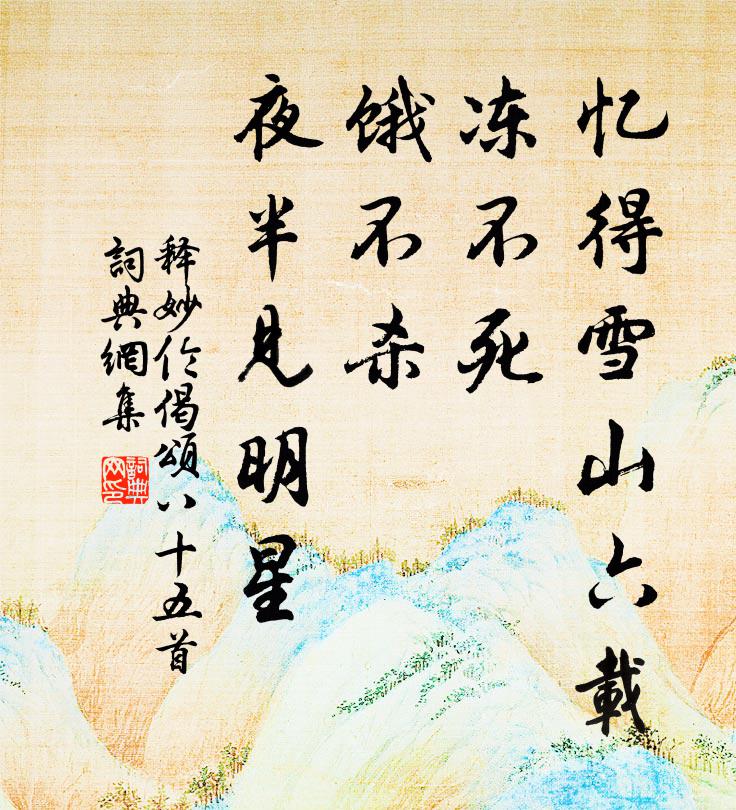 忆得雪山六載
冻不死
饿不杀
夜半见明星
释妙伦偈頌八十五首
詞典網集
詞典网印